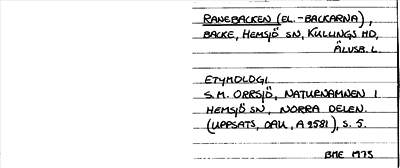 RANEBACKEN (EL. -BACKARNA),
BACKE, HEMSJÖ SN, KULLINGS HD,
ÄLVSB. L.
ETYMOLOGI.
S.M. ORRSJÖ, NATURNAMNEN I
HEMSJÖ SN, NORRA DELEN.
(UPPSATS, OAU, A 2581), S. 5.
BME M75